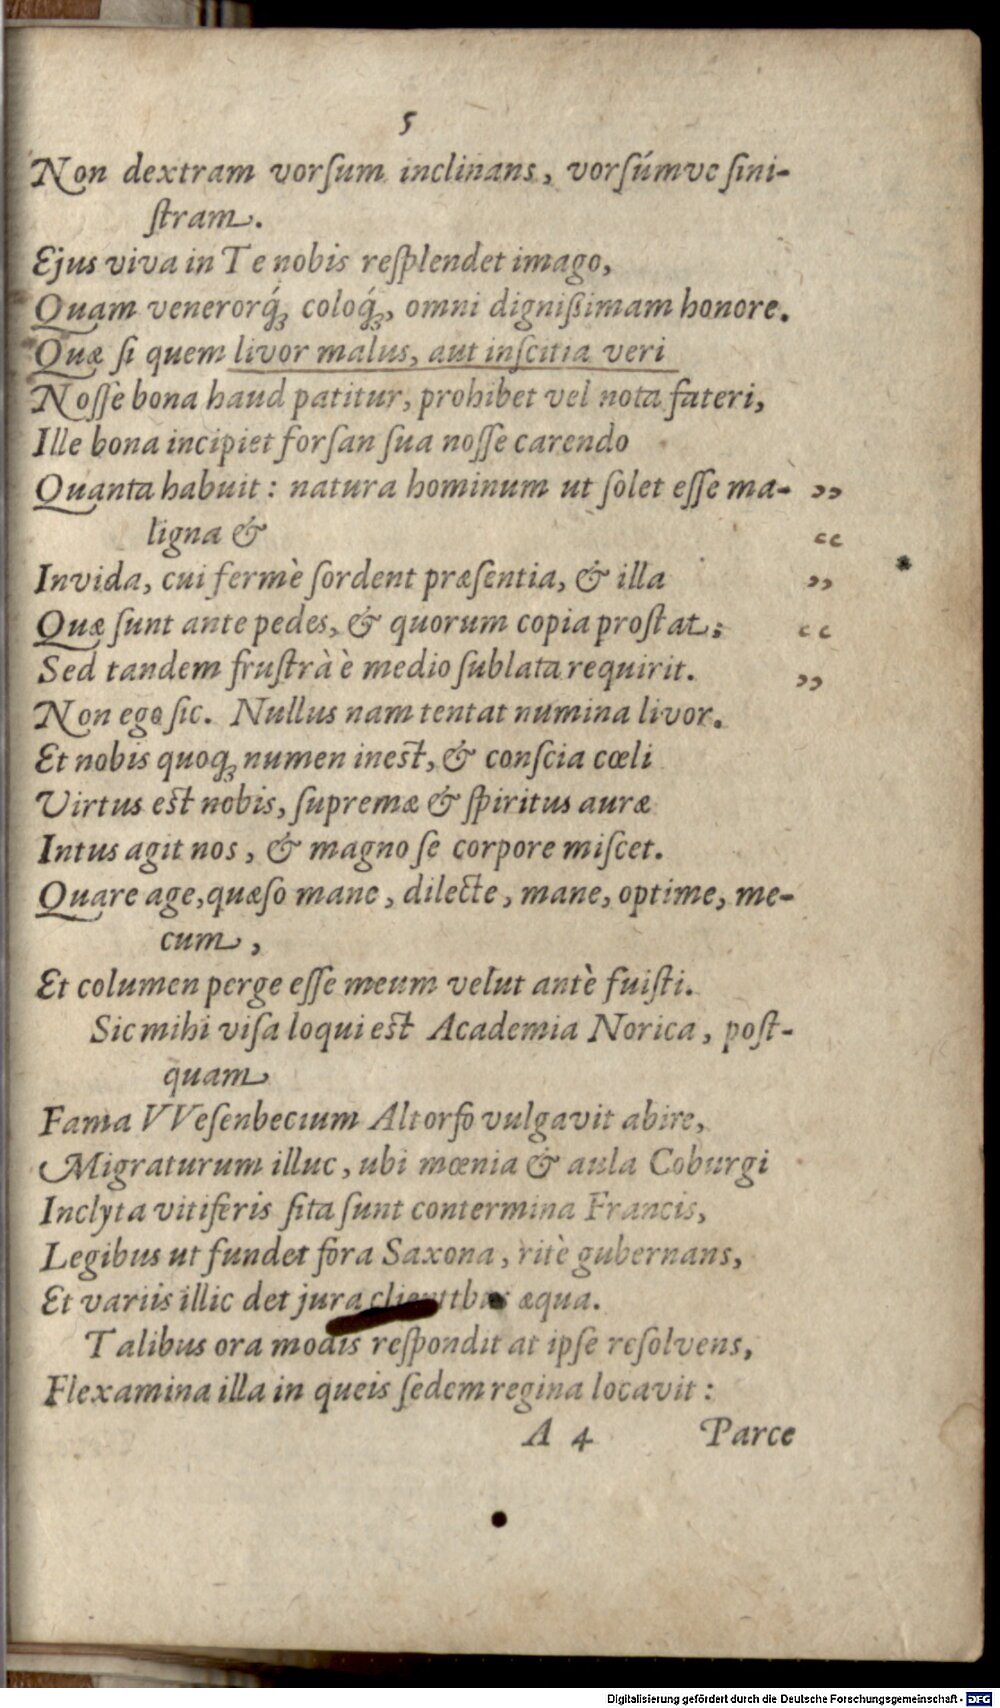 5
Non dextram vorſum inclinans, vorſúmve ſini-
ſtram.
Ejus viva in Te nobis reſplendet imago,
Quam venerorq́; coloq́;, omni digniſſimam honore.
Quæ ſi quem livor malus, aut inſcitia veri
Noſſe bona haud patitur, prohibet vel nota fateri,
Ille bona incipiet forſan ſua noſſe carendo
Quanta habuit: natura hominum ut ſolet eſſe ma- ”
ligna & “
Invida, cui fermè ſordent præſentia, & illa ”
Quæ ſunt ante pedes, & quorum copia proſtat; “
Sed tandem fruſtrà è medio ſublata requirit. ”
Non ego ſic. Nullus nam tentat numina livor.
Et nobis quoq; numen ineſt, & conſcia cœli
Virtus eſt nobis, ſupremæ & ſpiritus auræ
Intus agit nos, & magno ſe corpore miſcet.
Quare age, quæſo mane, dilecte, mane, optime, me-
cum,
Et columen perge eſſe meum velut antè fuiſti.
Sic mihi viſa loqui eſt Academia Norica, poſt-
quam
Fama VVeſenbecium Altorfo vulgavit abire,
Migraturum illuc, ubi mœnia & aula Coburgi
Inclyta vitiferis ſita ſunt contermina Francis,
Legibus ut fundet fora Saxona, ritè gubernans,
Et variis illic det jura æqua.
Talibus ora modis reſpondit at ipſe reſolvens,
Flexamina illa in queis ſedem regina locavit:
A 4 Parce
Digitalisierung gefördert durch die Deutsche Forschungsgemeinschaft - DFG